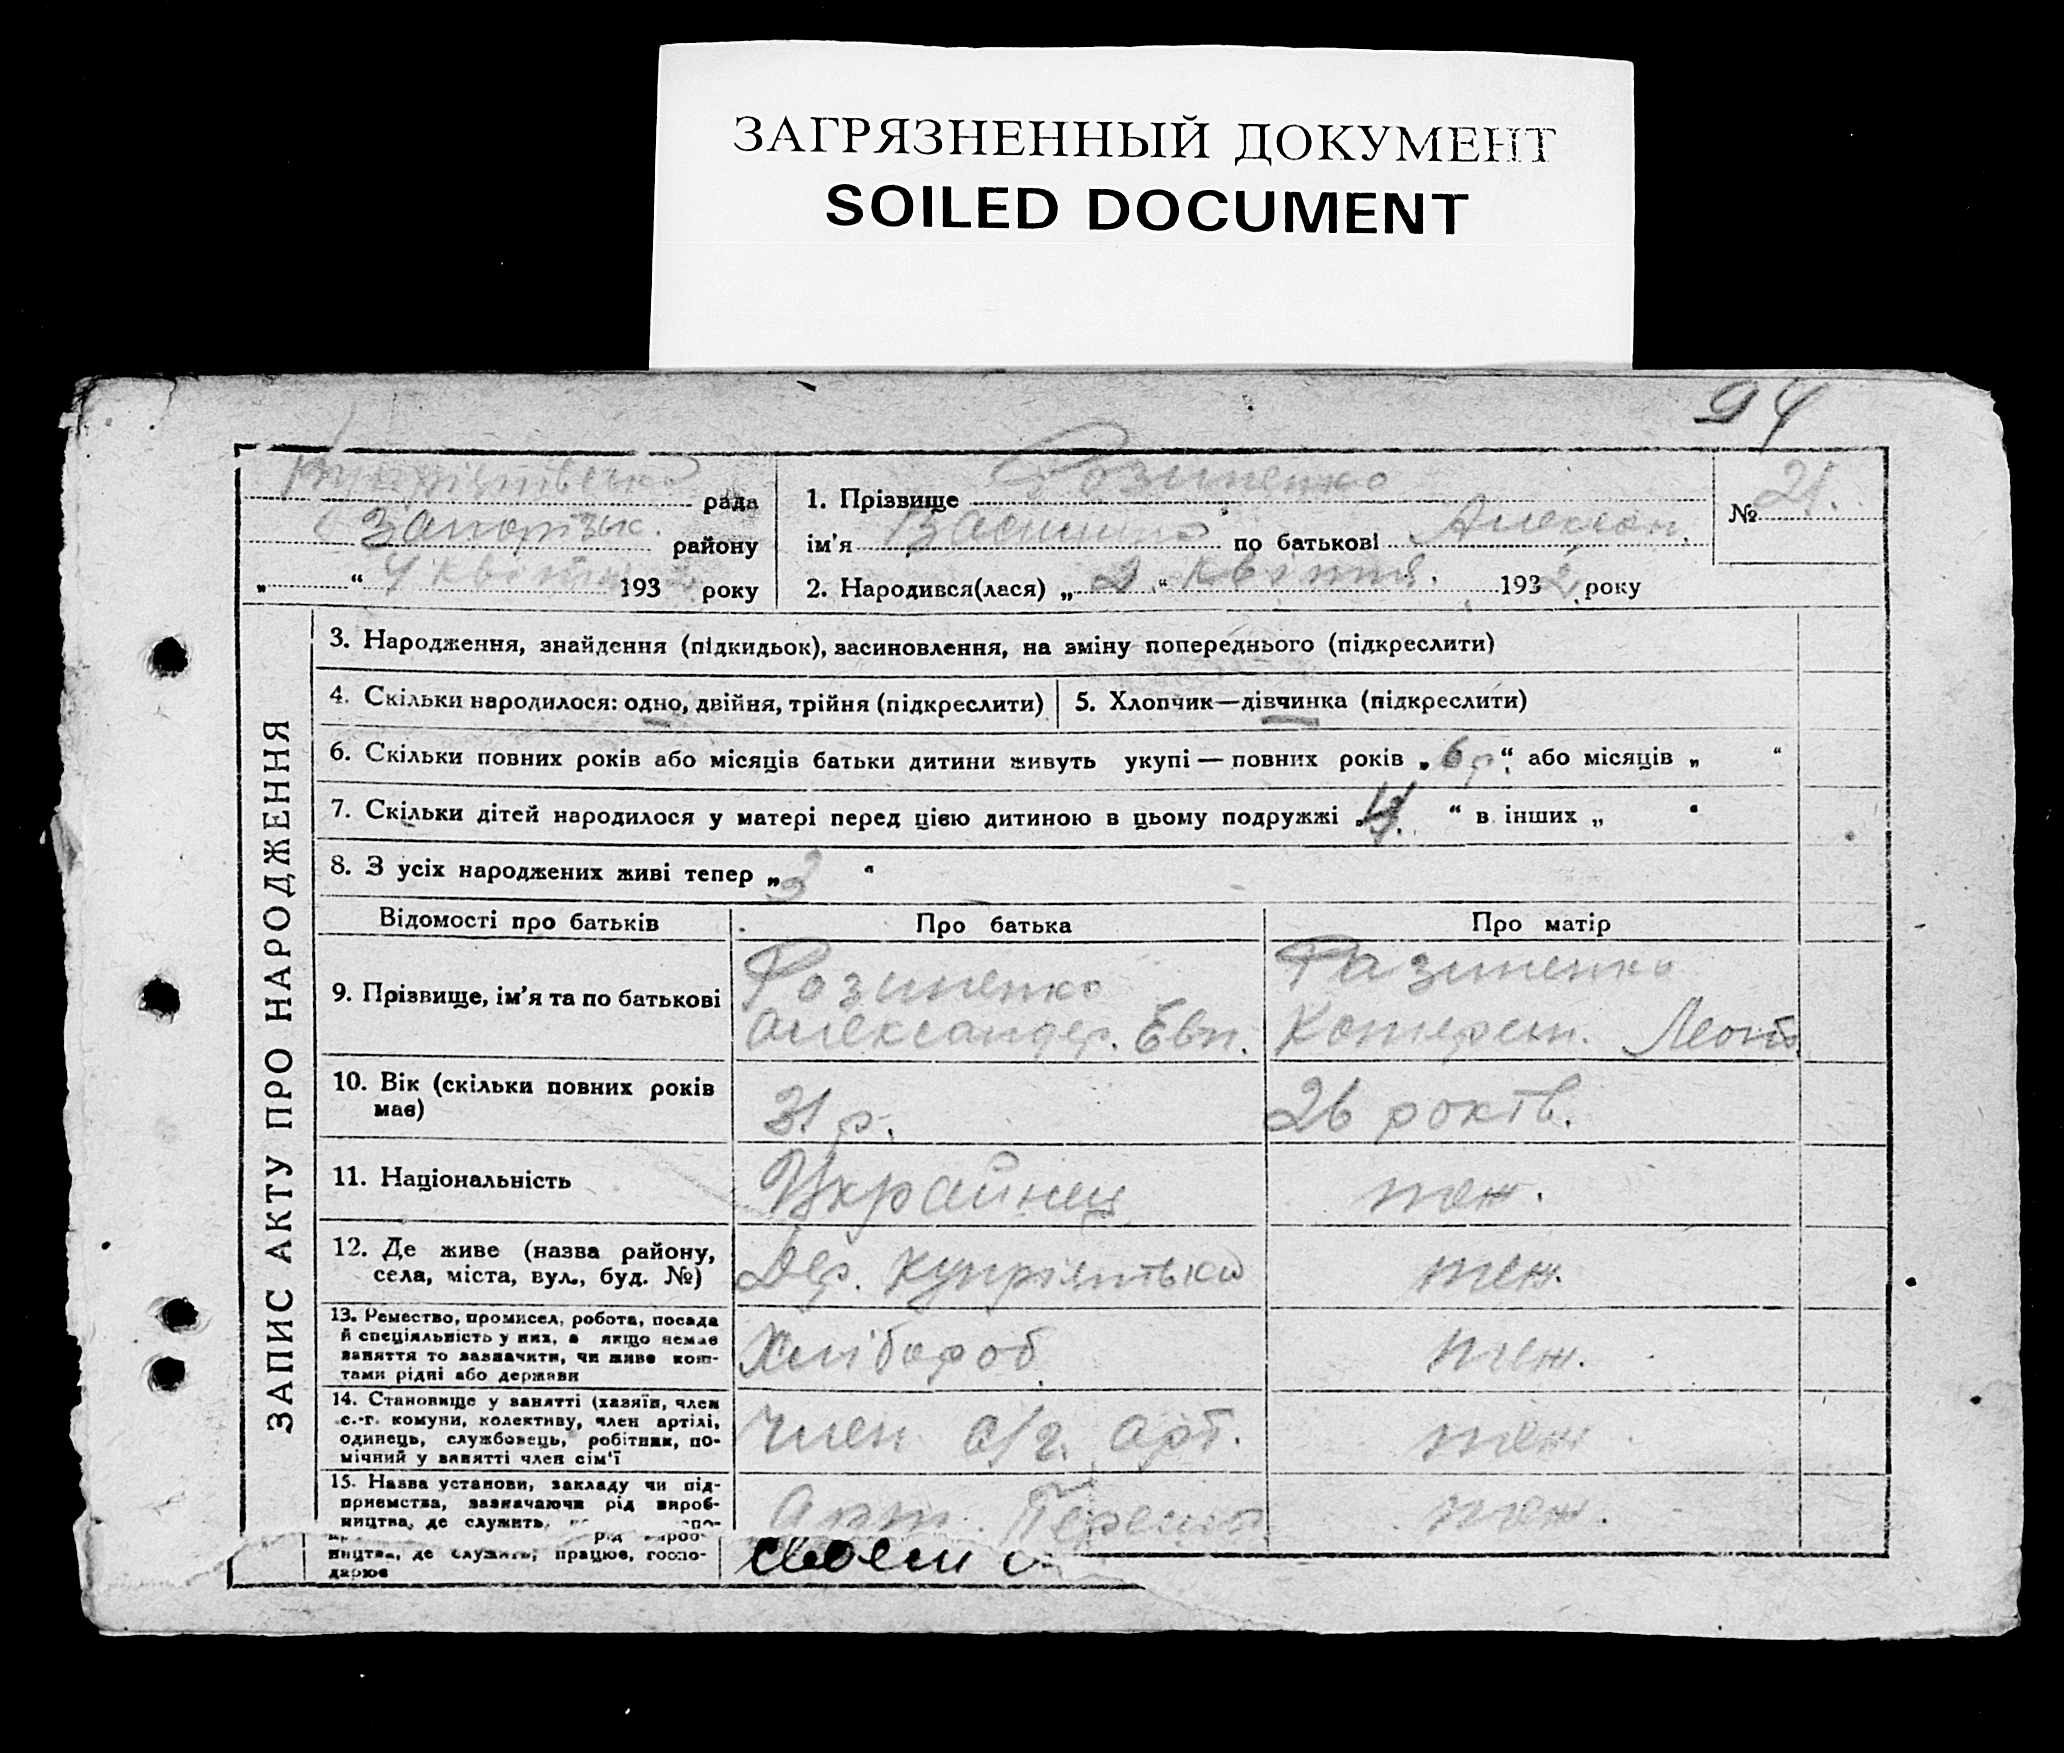 ЗАГРЯЗНЕННЫЙ ДОКУМЕНТ
SOILED DOCUMENT
94
рада
Запорізьк. району
„ “ 4 квітня 193 року
1. Прізвище Розиненко
ім’я по батькові Алексан.
2. Народився(лася) „ 2 “ квітня. 1932 року
№ 21.
ЗАПИС АКТУ ПРО НАРОДЖЕННЯ
3. Народження, знайдення (підкидьок), засиновлення, на зміну попереднього (підкреслити)
4. Скільки народилося: одно, двійня, трійня (підкреслити)
5. Хлопчик—дівчинка (підкреслити)
6. Скільки повних років або місяців батьки дитини живуть укупі — повних років „ 6 р “ або місяців „ “
7. Скільки дітей народилося у матері перед цією дитиною в цьому подружжі „ 4 “ в інших „ “
8. З усіх народжених живі тепер „ 3 “
Відомості про батьків
Про батька
Про матір
9. Прізвище, ім’я та по батькові
Розиненко
Александер. Евп.
Разиненко
Катерин.
10. Вік (скільки повних років
має)
31 р.
26 років.
11. Національність
Украйнец
теж.
12. Де живе (назва району,
села, міста, вул., буд. №)
Дер. Купріянівка
теж.
13. Ремество, промисел, робота, посада
й спеціяльність у них, а якщо немає
заняття то зазначити, чи живе кош-
тами рідні або держави
Хлібороб
теж.
14. Становище у занятті (хазяїн, член
с.-г. комуни, колективу, член артілі,
одинець, службовець, робітник, по-
мічний у занятті член сім’ї
член с/г. арт.
теж
15. Назва установи, закладу чи під-
приємства, зазначаючи рід вироб-
ництва, де служить,
Арт.
теж.
ництва, де служить, працює, госпо-
дарює